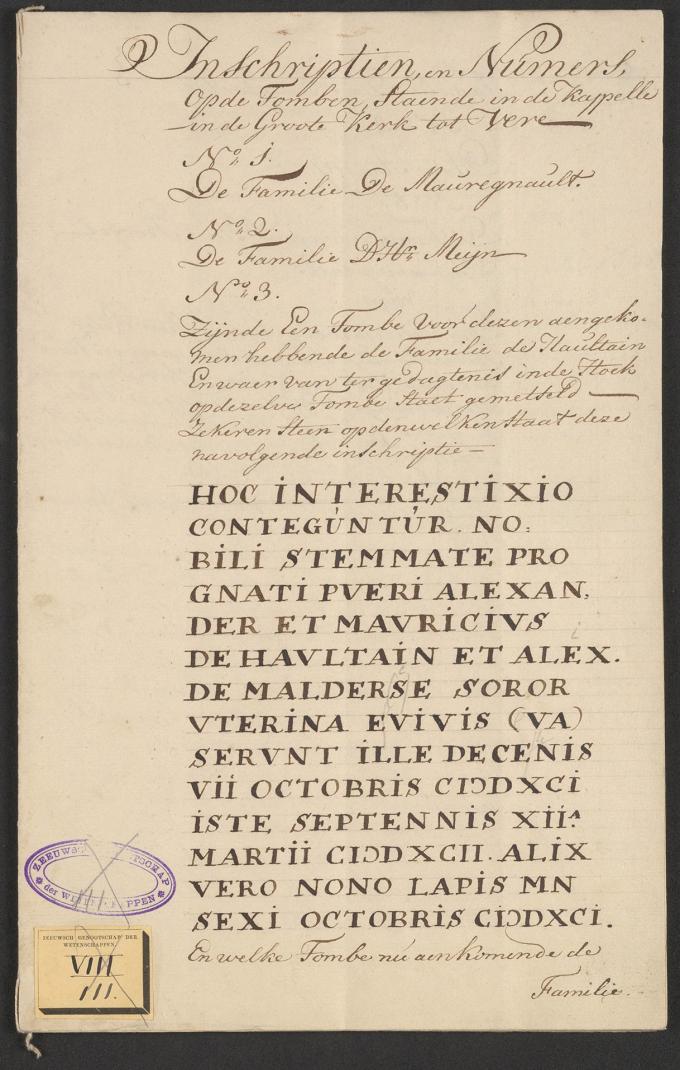 Inschriptien, en Numers,
Op de Tomben, Staende in de Kappelle
in de Groote Kerk tot Vere
No. 1.
De Familie De Mauregnault.
No. 2.
De Familie D'Hr. Meijn
No. 3.
Zijnde Een Tombe voor dezen aengeko-
men hebbende de Familie de Haultain
En waer van ter gedagtenis in de Hoek
op dezelve Tombe Staet gemetseld
Zekeren Steen op denwelken Staat deze
navolgende inschriptie
HOC INTERESTIXIO
CONTEGUNTUR. NO:
BILI STEMMATE PRO
GNATI PVERI ALEXAN,
DER ET MAVRICIVS
DE HAVLTAIN ET ALEX.
DE MALDERSE SOROR
VTERINA EVIVIS (VA)
SERVNT ILLE DECENIS
VII OCTOBRIS CIↃDXCI
ISTE SEPTENNIS XII^
MARTII CIↃDXCII. ALIX
VERO NONO LAPIS MN
SEXI OCTOBRIS CIↃDXCI.
En welke Tombe nú aenkomende de
Familie.
ZEEUWSCH GENOOTSCHAP
der WETENSCHAPPEN
ZEEUWSCH GENOOTSCHAP DER
WETENSCHAPPEN.
VIII
III.